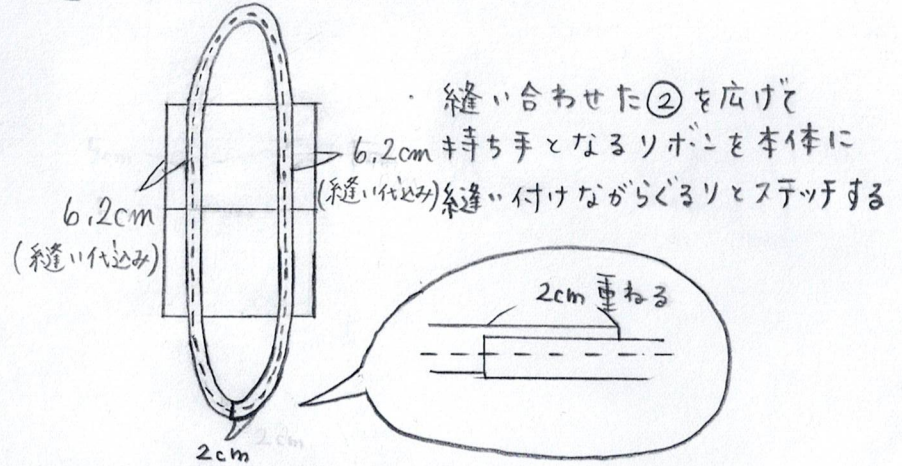 縫い合わせた②を広げて
持ち手となるリボンを本体に
縫い付けながらぐるりとステッチする
6.2cm
(縫い代込み)
6.2cm
(縫い代込み)
2cm 重ねる
2cm